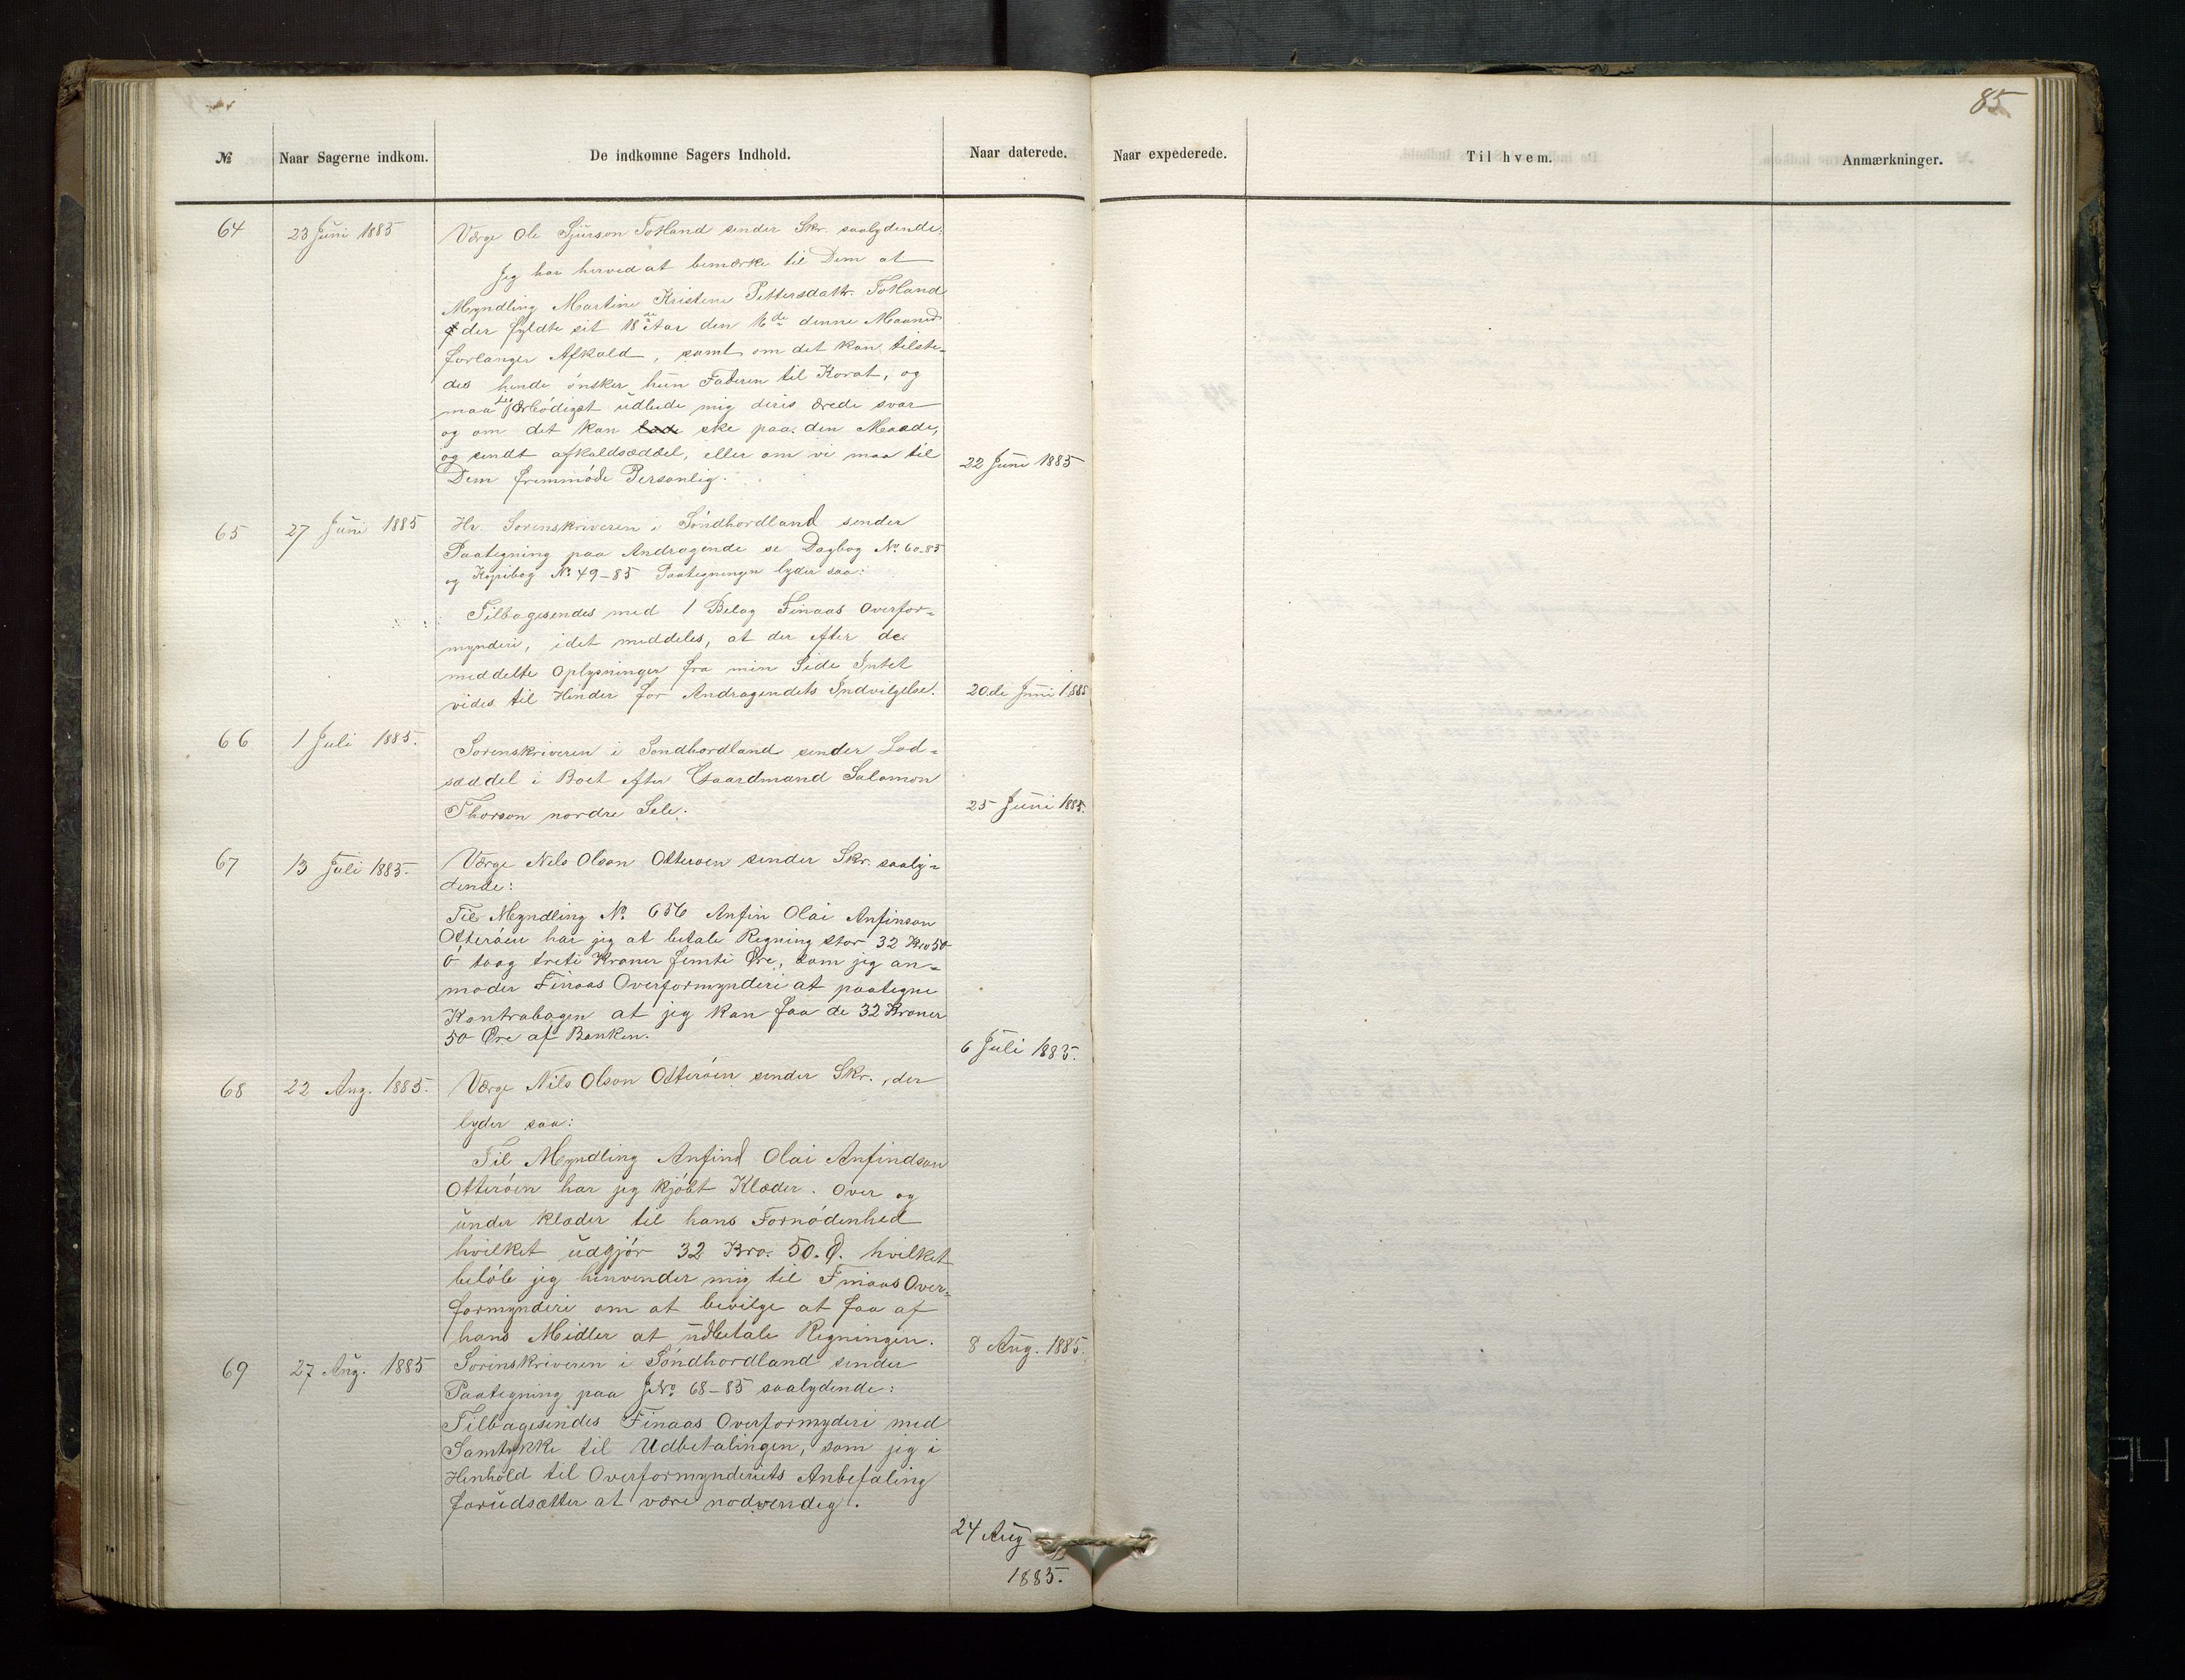 85
№ Naar Sagerne indkom. De indkomne Sagers Indhold. Naar daterede. Naar expederede. Til hvem. Anmærkninger.
64 23 Juni 1885 Værge Ole Sjurson Totland sender Skr. saalydende:
Jeg har herved at bemærke til Dem at
Myndling Martine Kristene Pettersdattr. Totland
der fyldte sit 18de Aar den 16de denne Maaned
forlanger Afkald, samt om det kan tilste-
des hende ønsker hun Faderen til Korat, og
maa ærbødigst udbede mig deris ærede svar
og om det kan ske paa den Maade,
og sendt afkaldsæddel, eller om vi maa til
Dem fremmøde Personlig. 22 Juni 1885
65 27 Juni 1885 Hr. Sorenskriveren i Søndhordland sender
Paategning paa Andragende se Dagbog No. 60-85
og Kopibog No. 49-85 Paategningen lyder saa:
Tilbagesendes med 1 Belag Finaas Overfor-
mynderi, idet meddeles, at der efter de
meddelte Oplysninger fra min Side Intet
vides til Hinder for Andragendets Indvilgelse. 20.de Juni 1885
66 1 Juli 1885. Sorenskriveren i Søndhordland sender Lod-
sæddel i Boet efter Gaardmand Salamon
Thorson nordre Sele. 25 Juni 1885.
67 13 Juli 1885. Værge Nels Olson Otterøen sender Skr. saaly-
dende:
Til Myndling No. 656 Anfin Olai Anfinson
Otterøen har jeg at betale Regning stor 32 Kro 50
Ø toog treti Kroner femti Øre, som jeg an-
moder Finaas Overformynderi at paategne
Kontrabogen at jeg kan faa de 32 Kroner
50 Øre af Banken. 6 Juli 1885.
68 22 Aug. 1885. Værge Nils Olson Otterøen sender Skr., der
lyder saa:
Til Myndling Anfind Olai Anfindson
Otterøen har jeg kjøbt Klæder. Over og
under klæder til hans Fornødenhed
hvilket udgjør 32 Kro. 50. Ø. hvilket
beløb jeg henvender mig til Finaas Over-
formynderi om at bevilge at faa af
hans Midler at udbetale Regningen. 8 Aug. 1885.
69 27 Aug. 1885 Sorinskriveren i Søndhordland sender
Paategning paa JNo. 68-85 saalydende:
Tilbagesendes Finaas Overformyderi med
Samtykke til Udbetalingen, som jeg i
Henhold til Overformynderiets Anbefaling
forudsætter at være nodvendig. 24 Aug
1885.